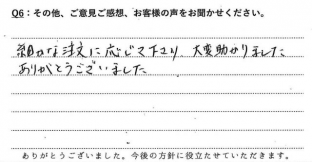 Q6：その他、ご意見ご感想、お客様の声をお聞かせください。
細かな注文に応じて下さり、大変助かりました
ありがとうございました
ありがとうございました。今後の方針に役立たせていただきます。